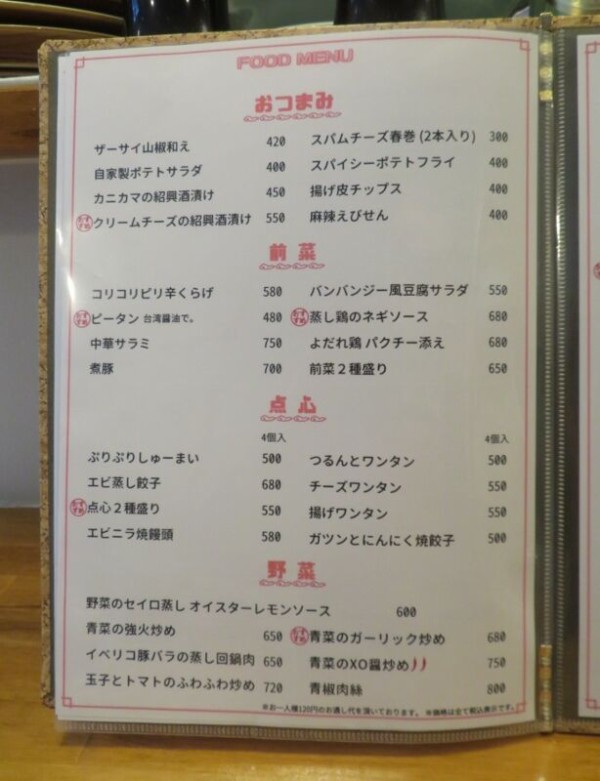 FOOD MENU
おつまみ
ザーサイ山椒和え 420
自家製ポテトサラダ 400
カニカマの紹興酒漬け 450
おすすめ クリームチーズの紹興酒漬け 550
スパムチーズ春巻(2本入り) 300
スパイシーポテトフライ 400
揚げ皮チップス 400
麻辣えびせん 400
前菜
コリコリピリ辛くらげ 580
おすすめ ピータン 台湾醤油で。 480
中華サラミ 750
煮豚 700
バンバンジー風豆腐サラダ 550
おすすめ 蒸し鶏のネギソース 680
よだれ鶏 パクチー添え 680
前菜2種盛り 650
点心
4個入
ぷりぷりしゅーまい 500
エビ蒸し餃子 680
おすすめ 点心2種盛り 550
エビニラ焼饅頭 580
4個入
つるんとワンタン 500
チーズワンタン 550
揚げワンタン 550
ガツンとにんにく焼餃子 500
野菜
野菜のセイロ蒸し オイスターレモンソース 600
青菜の強火炒め 650
イベリコ豚バラの蒸し回鍋肉 650
玉子とトマトのふわふわ炒め 720
おすすめ 青菜のガーリック炒め 680
青菜のXO醤炒め 750
青椒肉絲 800
※お一人様120円のお通し代を頂いております。 ※価格は全て税込表示です。